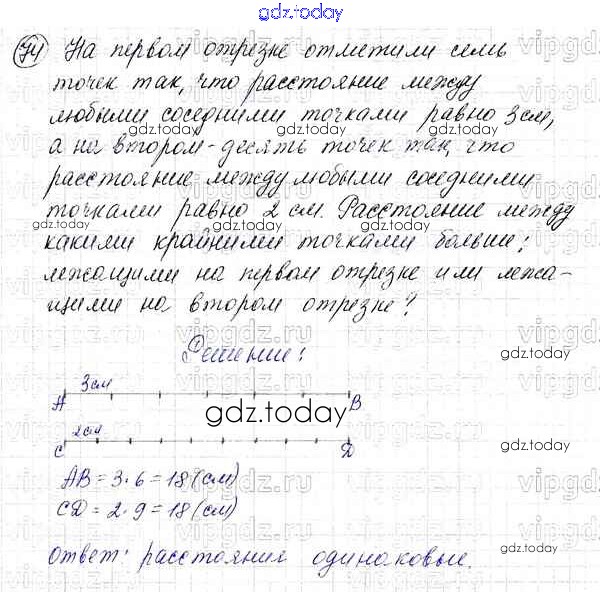 gdz.today
74 На первом отрезке отметили семь
точек так, что расстояние между
любыми соседними точками равно 3см,
gdz.today gdz.today
а на втором - десять точек так, что
расстояние между любыми соседними
точками равно 2 см. Расстояние между
gdz.today gdz.today gdz.today
какими крайними точками больше:
лежащими на первом отрезке или лежа-
щими на втором отрезке?
Решение:
gdz.today
3см
А В
gdz.today
2см
С D
АВ = 3·6 = 18 (см)
CD = 2·9 = 18 (см)
gdz.today
Ответ: расстояния одинаковые.
vipgdz.ru